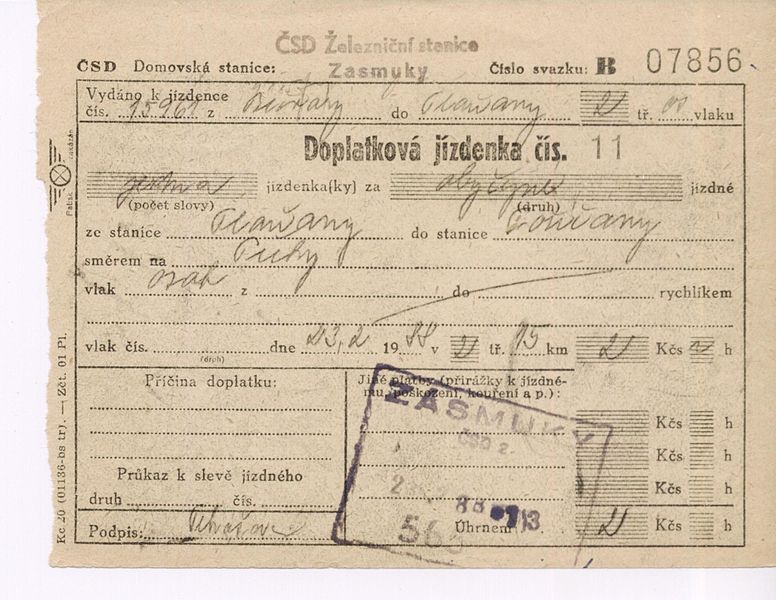 ČSD Železniční stanice
ČSD Domovská stanice: Zasmuky Číslo svazku: B 07856
Vydáno k jízdence
čís. 15961 z do Plaňany 2 tř. os vlaku
Doplatková jízdenka čís. 11
jedna jízdenka(ky) za obyčejné jízdné
(počet slovy) (druh)
ze stanice Plaňany do stanice
směrem na Pečky
vlak osob z do rychlíkem
vlak čís. dne 23.2 1988 v 2 tř. 15 km 2 Kčs h
(drph)
Příčina doplatku:
Jiné platby (přirážky k jízdné-
mu, poškození, kouření a p.):
Kčs h
Kčs h
Průkaz k slevě jízdného
Kčs h
druh čís.
Podpis: Úhrnem 2 Kčs h
ZASMUKY
ČSD 2
Kc 20 (01136-bs tr). — Zčt. 01 Pl.